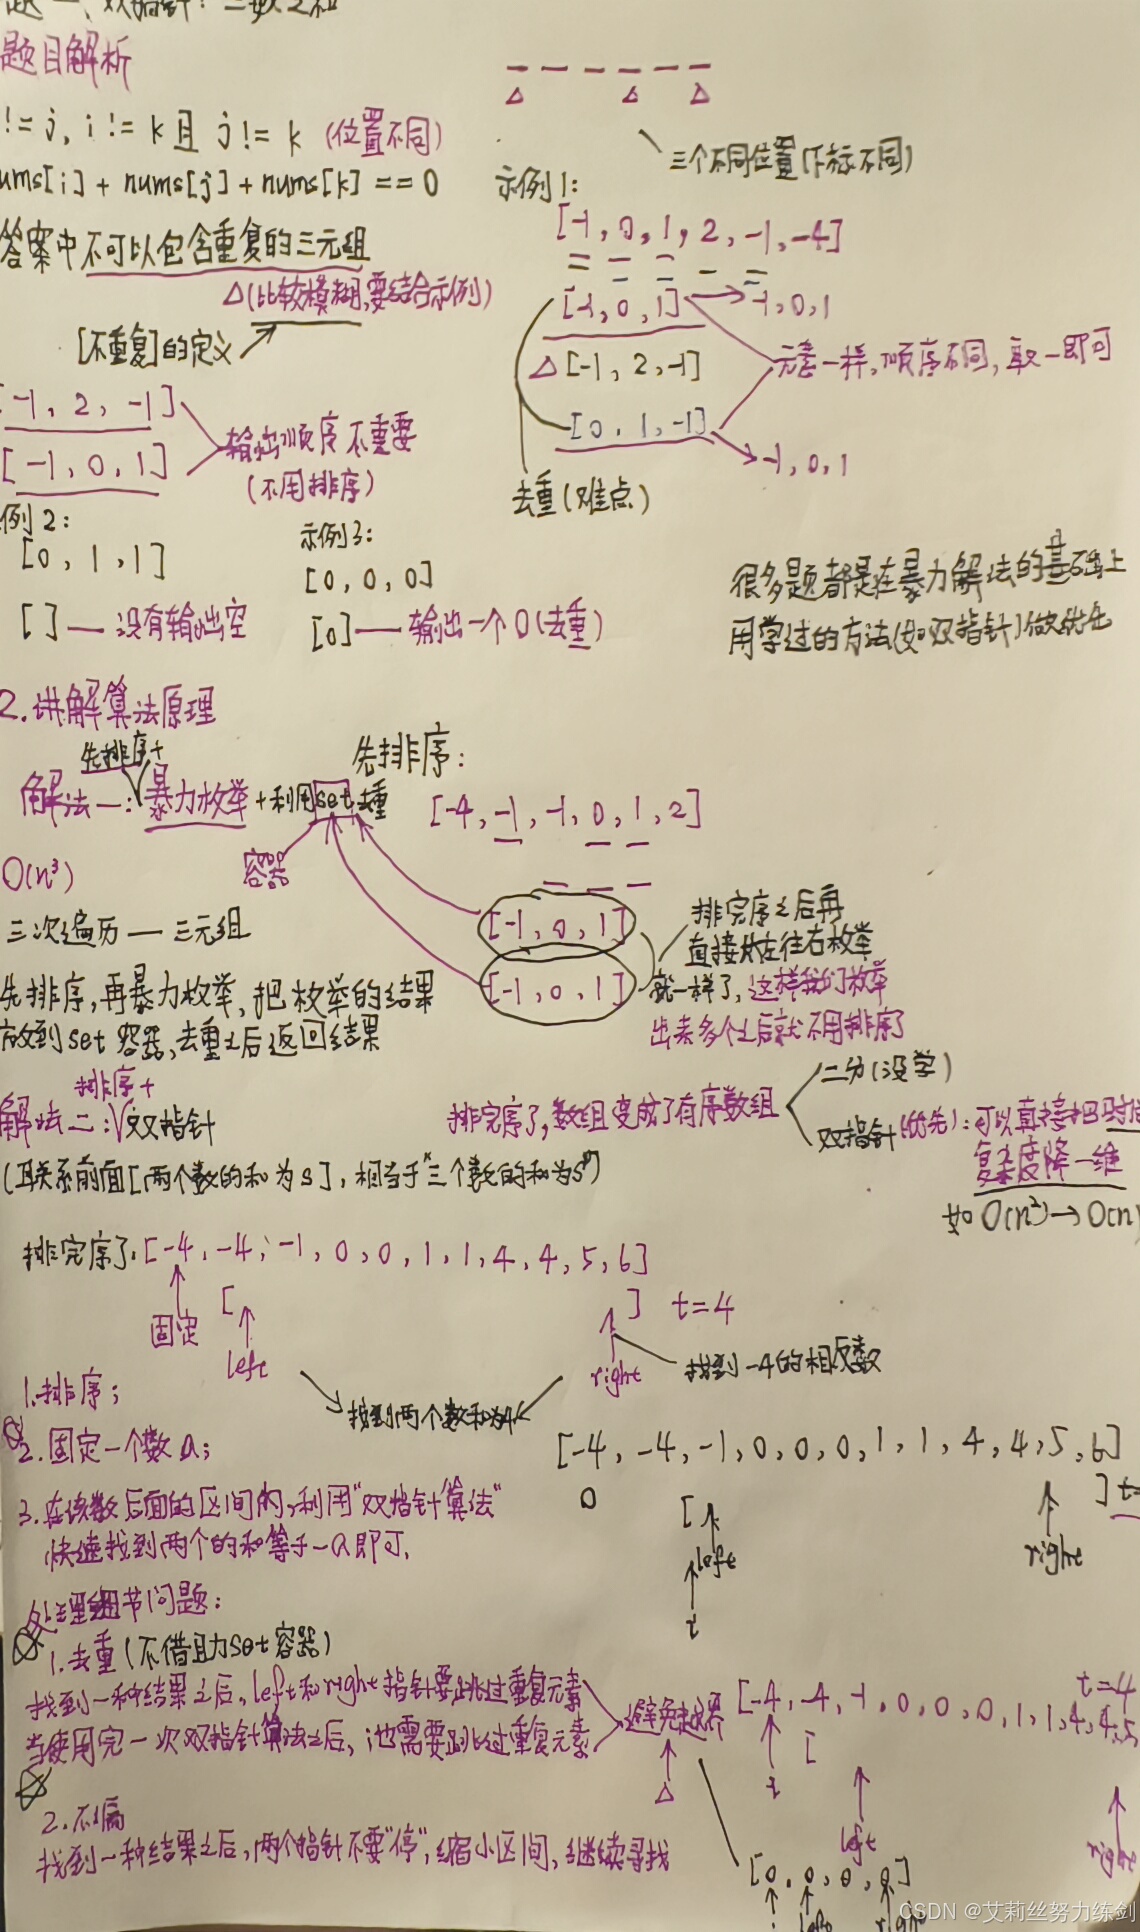 题一、双指针:三数之和
题目解析
!= j, i != k 且 j != k (位置不同)
ums[i] + nums[j] + nums[k] == 0
答案中不可以包含重复的三元组
△(比较模糊,要结合示例)
[不重复]的定义
[-1, 2, -1]
[-1, 0, 1]
输出顺序不重要
(不用排序)
三个不同位置(下标不同)
示例1:
[-1, 0, 1, 2, -1, -4]
[-1, 0, 1] → -1, 0, 1
△ [-1, 2, -1]
[0, 1, -1]
-1, 0, 1
元素一样,顺序不同,取一即可
去重(难点)
例2:
[0, 1, 1]
[] — 没有输出空
示例3:
[0, 0, 0]
[0] — 输出一个0(去重)
很多题都是在暴力解法的基础上
用学过的方法(如双指针)做优化
2. 讲解算法原理
先排序+
解法一:暴力枚举+利用set去重
容器
O(n³)
先排序:
[-4, -1, -1, 0, 1, 2]
[-1, 0, 1]
[-1, 0, 1]
排完序之后再
直接从左往右枚举
就一样了,这样我们枚举
出来多个之后就不用排序了
三次遍历 — 三元组
先排序,再暴力枚举,把枚举的结果
放到set容器,去重之后返回结果
排序+
解法二:双指针
排完序了,数组变成了有序数组
二分(没学)
双指针(优先):可以直接把时
复杂度降一维
如 O(n²) → O(n)
(联系前面[两个数的和为s],相当于"三个数的和为s")
排完序了.[-4, -4, -1, 0, 0, 1, 1, 4, 4, 5, 6]
固定
[
left
]
right
t=4
找到-4的相反数
找到两个数和为4
1.排序;
2.固定一个数a;
3.在该数后面的区间内,利用"双指针算法"
快速找到两个的和等于-a即可.
[-4, -4, -1, 0, 0, 0, 1, 1, 4, 4, 5, 6]
0
[
left
i
] t=
right
处理细节问题:
1.去重(不借助set容器)
找到一种结果之后,left和right指针要跳过重复元素
当使用完一次双指针算法之后,i也需要跳过重复元素
避免越界
△
[-4, -4, -1, 0, 0, 0, 1, 1, 4, 4, 5,
t=4
i
[
left
right
2.不漏
找到一种结果之后,两个指针不要"停",缩小区间,继续寻找
[0, 0, 0, 0]
CSDN @艾莉丝努力练剑